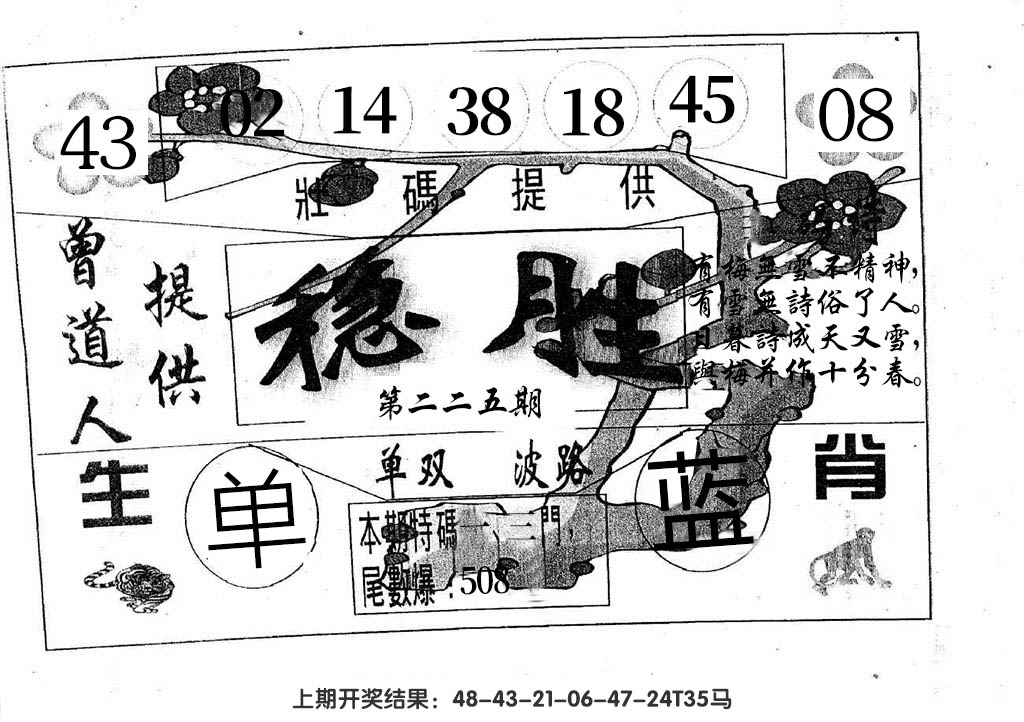 43 02 14 38 18 45 08
壯碼提供
曾道人
提供
穩胜
第二二五期
有梅無雪不精神，
有雪無詩俗了人。
日暮詩成天又雪，
與梅并作十分春。
单双 波路
生 肖
单 蓝
本期特碼一、三門，
尾數爆：508
上期开奖结果：48-43-21-06-47-24T35马